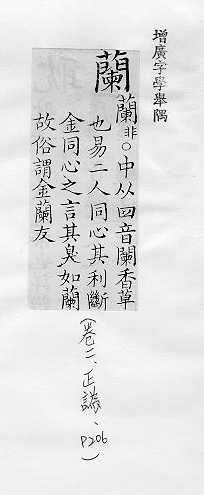 增廣字學舉隅
蘭
蘭非○中从四音闌香草
也易二人同心其利斷
金同心之言其臭如蘭
故俗謂金蘭友
(卷二、正譌、P206)